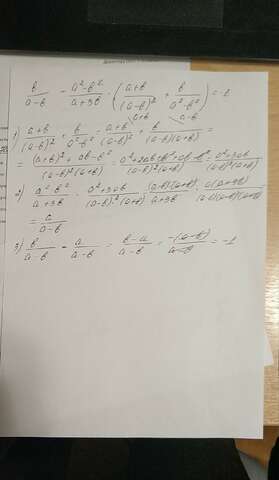 b/(a-b) - (a²-b²)/(a+3b) · ((a+b)/(a-b)² + b/(a²-b²)) = -1
1) (a+b)/(a-b)² + b/(a²-b²) = (a+b)/(a-b)² + b/((a-b)(a+b)) =
= ((a+b)²+ab-b²)/((a-b)²(a+b)) = (a²+2ab+b²+ab-b²)/((a-b)²(a+b)) = (a²+3ab)/((a-b)²(a+b))
2) (a²-b²)/(a+3b) · (a²+3ab)/((a-b)²(a+b)) = ((a-b)(a+b))/(a+3b) · (a(a+3b))/((a-b)(a-b)(a+b)) =
= a/(a-b)
3) b/(a-b) - a/(a-b) = (b-a)/(a-b) = (-(a-b))/(a-b) = -1